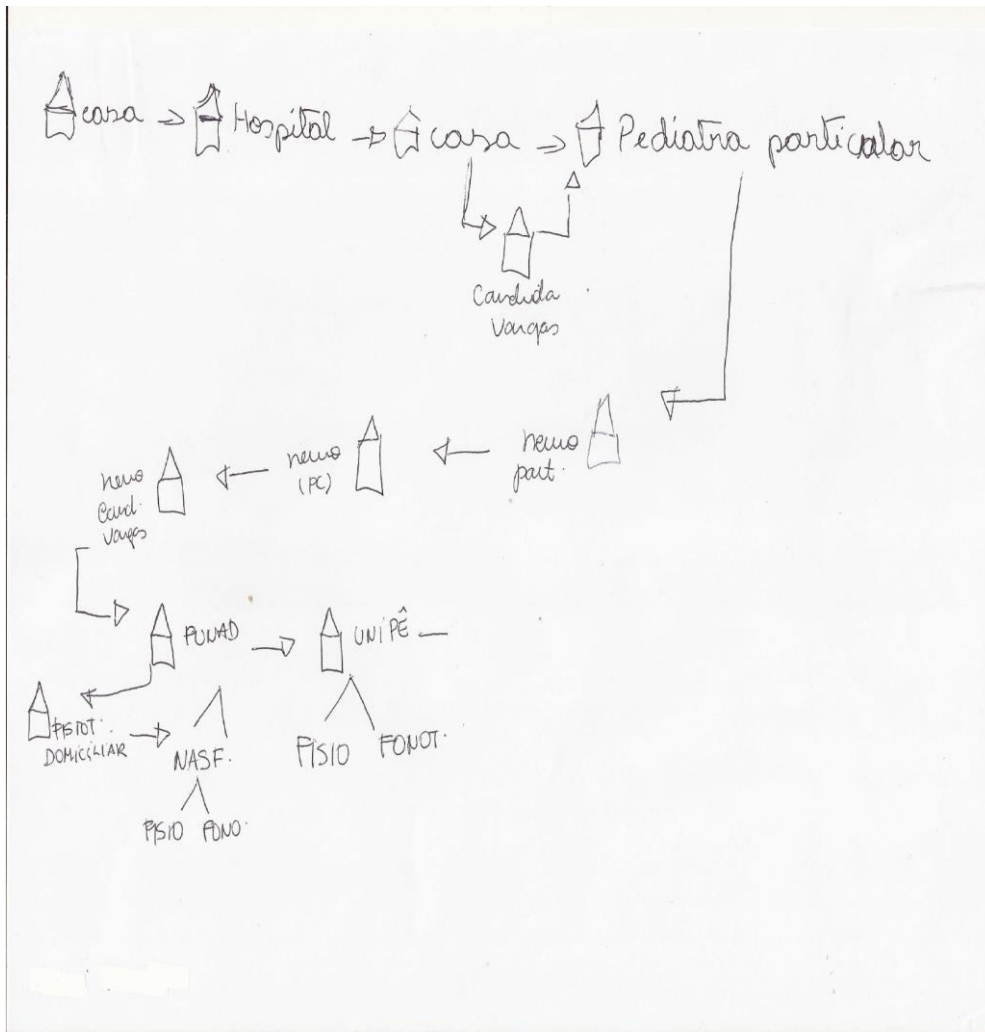 casa Hospital casa Pediatra particular
Candida
Vargas
neuro
part.
neuro
(PC)
neuro
Cand.
Vargas
FUNAD UNIPÊ
FISIOT.
DOMICILIAR
NASF.
FISIO FONOT.
FISIO FONO.